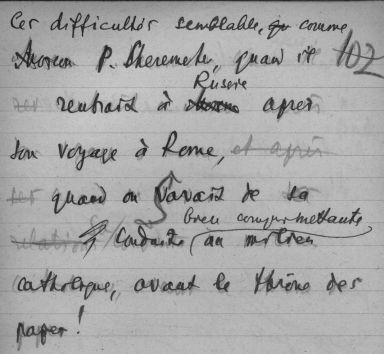 Ces difficultés semblable, comme
P. Sheremete, quand it 102
rentrait à Russie apres
son voyage à Rome, et après
quand on savait de sa
bien compromettante
conduite au milieu
catholique, avant le thrône des
papes!